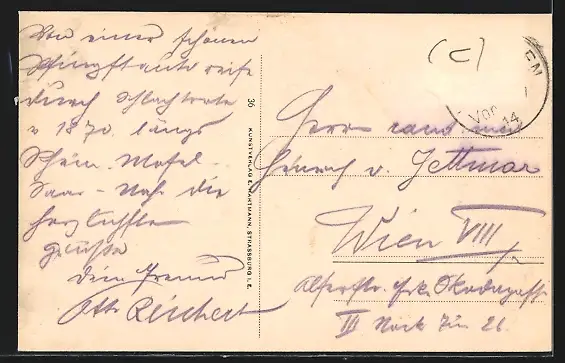 Von einer schönen
Pfingstautoreise
durch Schlachtorte
v 1870. längs
Rhein - Mosel -
Saar - Nahe die
herzlichsten
Grüsse
Dein Freund
Otto Reichert
36
KUNSTVERLAG E. HARTMANN, STRASSBURG I. E.
(C)
14
Herrn cand.
Heinrich v. Jettmar
Wien VIII
Alserstr.
III Stock Tür 21.